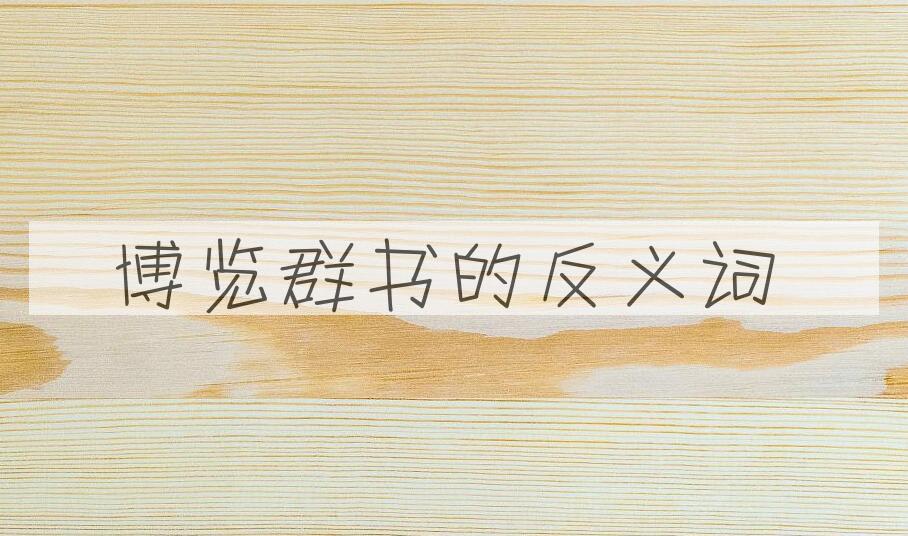 博览群书的反义词